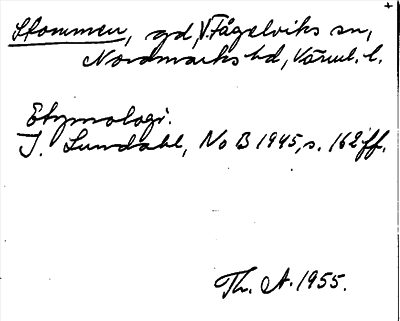 Stommen, gd, V. Fågelviks sn,
Nordmarks hd, Värml. l.
Etymologi.
I. Lundahl, NoB 1945, s. 162 ff.
Th. A. 1955.